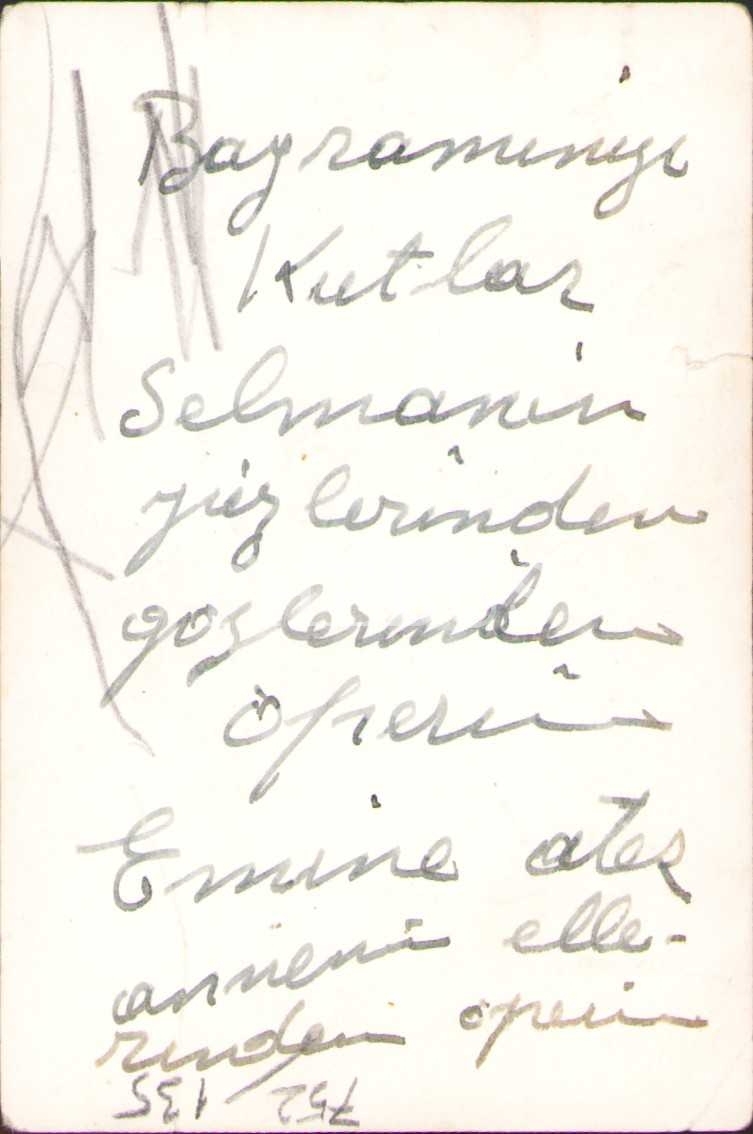 Bayraminizi
Kutlar
Selmanin
yüzlerinden
gözlerinden
öperim
Emine ateş
annemin elle-
rinden öperim
752 135